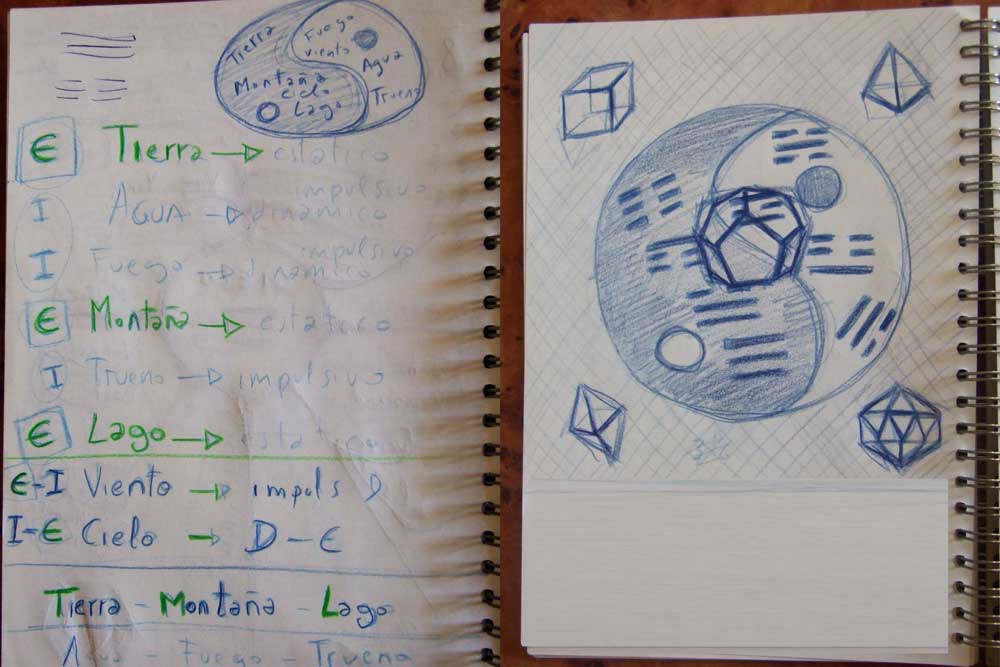 Tierra
Fuego
viento
Agua
Trueno
Montaña
cielo
Lago
E Tierra → estatico
impulsivo
I AGUA → dinamico
impulsivo
I Fuego → dinamico
E Montaña → estatico
I Trueno → impulsivo
E Lago → estatico
E-I Viento → impuls D
I-E Cielo → D-E
Tierra - Montaña - Lago
Agua - Fuego - Trueno